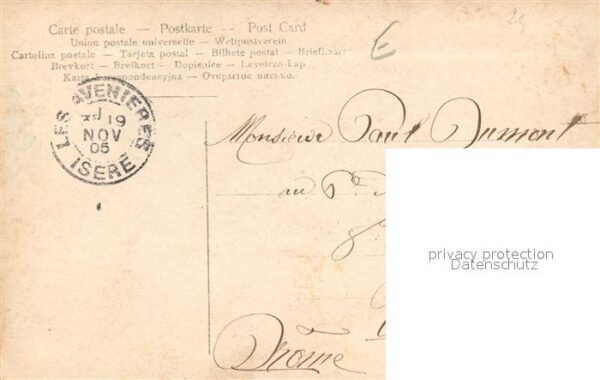 Carte postale — Postkarte — Post Card
Union postale universelle — Weltpostverein
Cartolina postale — Tarjeta postal — Bilhete postal — Briefkaart
Brevkort — Brefkort — Dopisnice — Levelező-Lap
Karta korespondencyjna — Открытое письмо.
E
LES AVENIERES
19
NOV
05
ISERE
Monsieur Paul Dumont
au 6e
8e
Drôme
privacy protection
Datenschutz